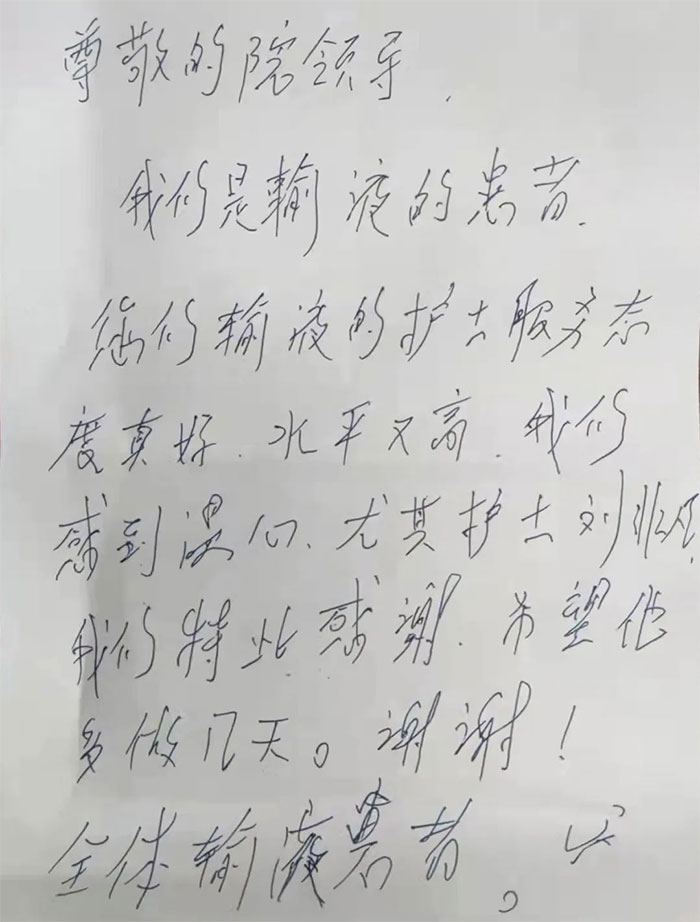 尊敬的院领导,
我们是输液的患者.
您们输液的护士服务态
度真好.水平又高.我们
感到温心.尤其护士刘
我们特此感谢.希望他
多做几天。谢谢!
全体输液患者。